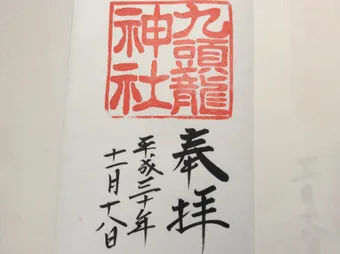 九頭龍
神社
奉拝
平成三十年
十一月十八日